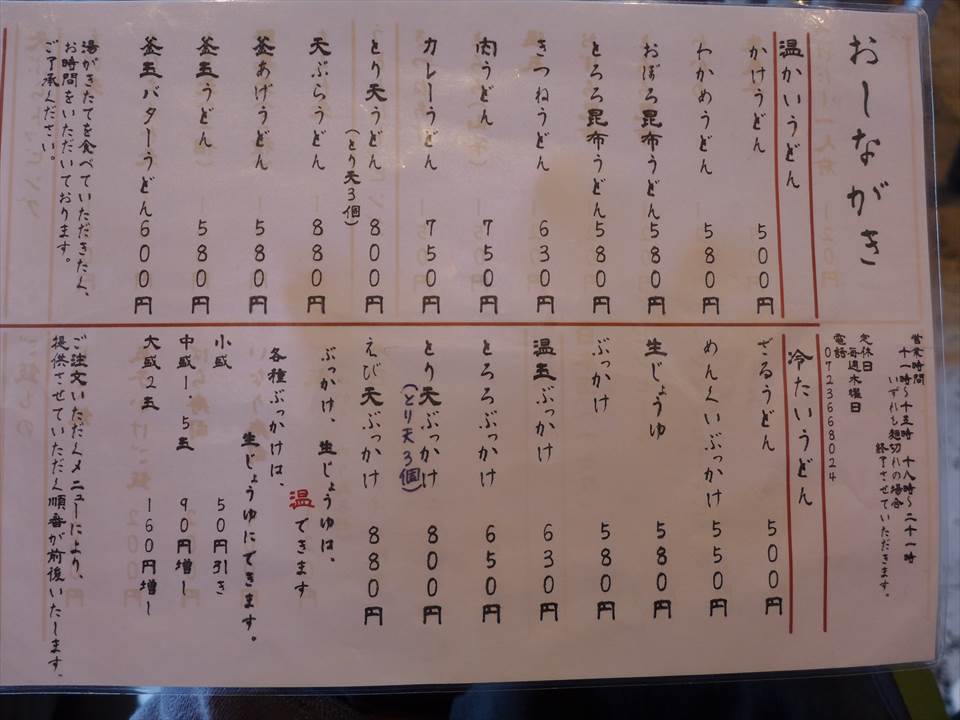 おしながき
温かいうどん
かけうどん 500円
わかめうどん 580円
おぼろ昆布うどん 580円
とろろ昆布うどん 580円
きつねうどん 630円
肉うどん 750円
カレーうどん 750円
とり天うどん 800円
(とり天3個)
天ぷらうどん 880円
釜あげうどん 580円
釜玉うどん 580円
釜玉バターうどん 600円
湯がきたてを食べていただきたく、
お時間をいただいております。
ご了承ください。
営業時間
十一時~十五時 十八時~二十一時
いずれも麺切れの場合
終了させていただきます。
定休日
毎週木曜日
電話
0723668024
冷たいうどん
ざるうどん 500円
めんくいぶっかけ 550円
生じょうゆ 580円
ぶっかけ 580円
温玉ぶっかけ 630円
とろろぶっかけ 650円
とり天ぶっかけ 800円
(とり天3個)
えび天ぶっかけ 880円
ぶっかけ、生じょうゆは、
温できます
各種ぶっかけは、
生じょうゆにできます。
小盛 50円引き
中盛1.5玉 90円増し
大盛2玉 160円増し
ご注文いただくメニューにより、
提供させていただく順番が前後いたします。